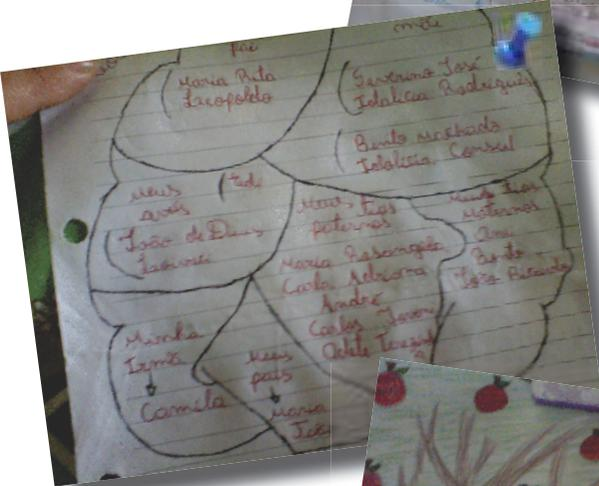 pai
Maria Rita
Leopoldo
mãe
Severino José
Idalicia Rodrigues
Bento Machado
Idalicia Consul
Meus
avós
João de Deus
Meus tios
paternos
Maria Rosangela
Carla Adriana
André
Carlos
Odete
Meus tios
Maternos
Ana
Bento
João Ricardo
Minha
Irmã
Camila
Meus
pais
Maria
João